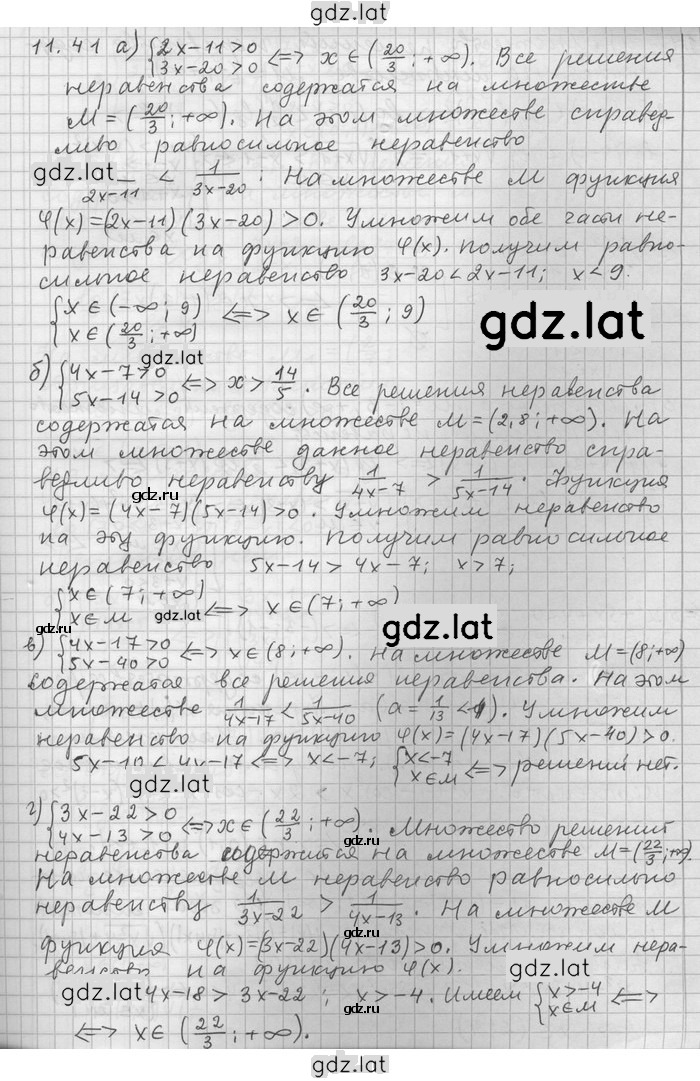 gdz.lat
11.41 а) {2x-11>0 3x-20>0 <=> x∈(20/3; +∞). Все решения
неравенства содержатся на множестве
M=(20/3; +∞). На этом множестве справед-
ливо равносильное неравенство
gdz.lat
/2x-11 < 1/3x-20. На множестве M функция
φ(x)=(2x-11)(3x-20)>0. Умножим обе части не-
равенства на функцию φ(x). Получим равно-
сильное неравенство 3x-20<2x-11; x<9.
{x∈(-∞; 9) x∈(20/3; +∞) <=> x∈(20/3; 9)
gdz.lat
gdz.lat
б) {4x-7>0 5x-14>0 <=> x>14/5. Все решения неравенства
содержатся на множестве M=(2,8; +∞). На
этом множестве данное неравенство спра-
ведливо неравенству 1/4x-7 > 1/5x-14. Функция
gdz.lat
φ(x)=(4x-7)(5x-14)>0. Умножим неравенство
на эту функцию. Получим равносильное
неравенство 5x-14>4x-7; x>7;
{x∈(7; +∞) x∈M <=> x∈(7; +∞)
gdz.lat
gdz.lat
gdz.lat
в) {4x-17>0 5x-40>0 <=> x∈(8; +∞). На множестве M=(8; +∞)
содержатся все решения неравенства. На этом
множестве 1/4x-17 < 1/5x-40 (a=1/13<1). Умножим
неравенство на функцию φ(x)=(4x-17)(5x-40)>0.
5x-40<4x-17 <=> x<-7; {x<-7 x∈M <=> решений нет.
gdz.lat
г) {3x-22>0 4x-13>0 <=> x∈(22/3; +∞). Множество решений
gdz.lat
неравенства содержится на множестве M=(22/3; +∞).
На множестве M неравенство равносильно
неравенству 1/3x-22 > 1/4x-13. На множестве M
gdz.lat
функция φ(x)=(3x-22)(4x-13)>0. Умножим нера-
венство на функцию φ(x).
gdz.lat
gdz.lat 4x-18>3x-22; x>-4. Имеем {x>-4 x∈M <=>
<=> x∈(22/3; +∞).
gdz.lat
gdz.lat